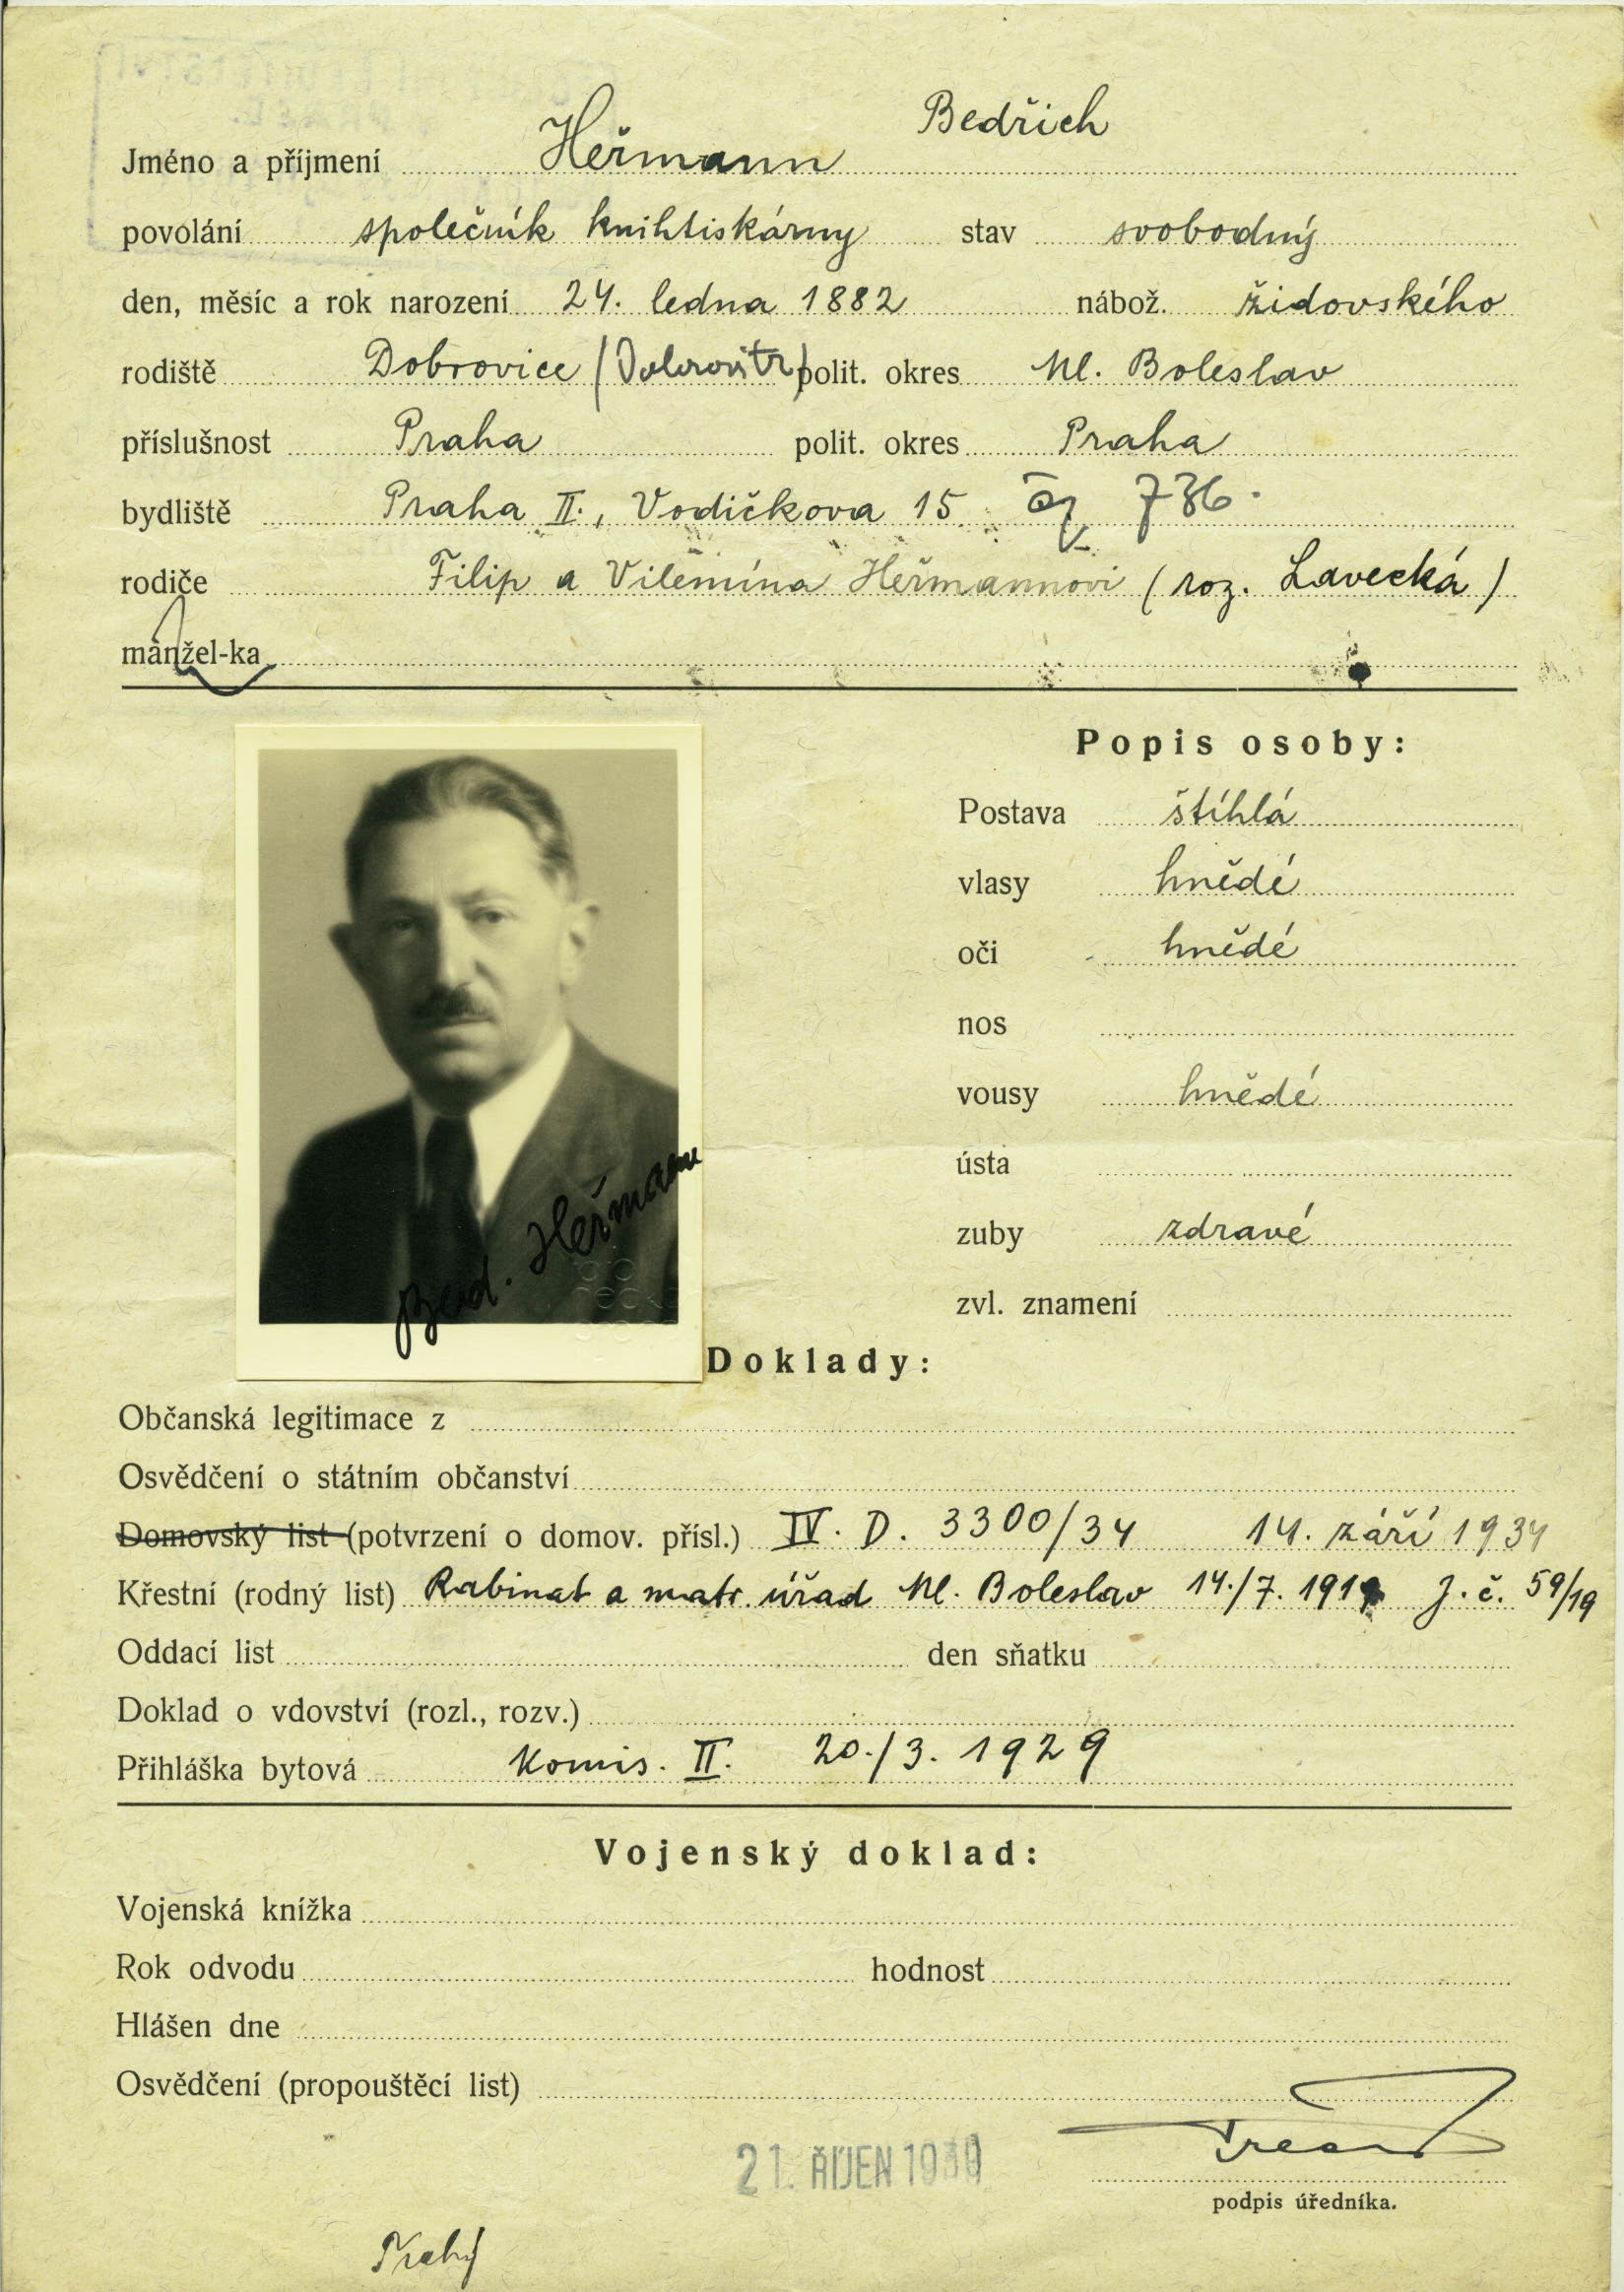 Bedřich
Jméno a příjmení Heřmann
povolání společník knihtiskárny stav svobodný
den, měsíc a rok narození 24. ledna 1882 nábož. židovského
rodiště Dobrovice polit. okres Ml. Boleslav
příslušnost Praha polit. okres Praha
bydliště Praha II., Vodičkova 15 čp 736.
rodiče Filip a Vilemína Heřmannovi (roz. Lavecká)
manžel-ka
Popis osoby:
Postava štíhlá
vlasy hnědé
oči hnědé
nos
vousy hnědé
ústa
zuby zdravé
zvl. znamení
Bed. Heřmann
Doklady:
Občanská legitimace z
Osvědčení o státním občanství
Domovský list (potvrzení o domov. přísl.) IV. D. 3300/34 14. září 1934
Křestní (rodný list) Rabinat a matr. úřad Ml. Boleslav 14./7. 1919 J. č. 59/19
Oddací list den sňatku
Doklad o vdovství (rozl., rozv.)
Přihláška bytová Komis. II. 20./3. 1929
Vojenský doklad:
Vojenská knížka
Rok odvodu hodnost
Hlášen dne
Osvědčení (propouštěcí list)
21. ŘÍJEN 1939
podpis úředníka.